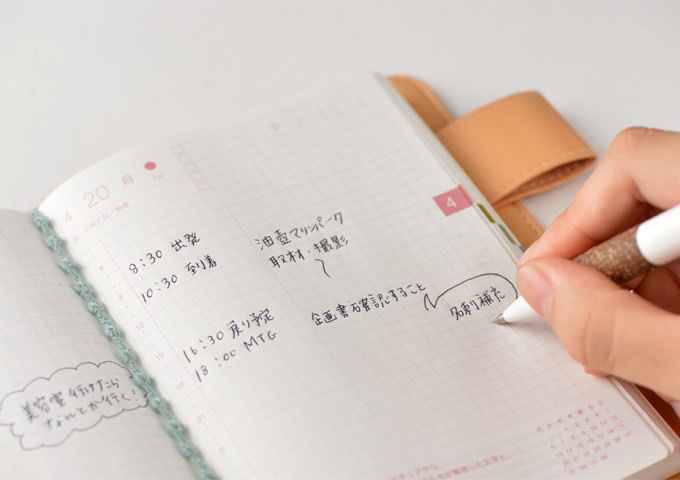 美容室行けたら
なんとか行く!
4
20 月
6
8:30 出発
9
10:30 到着
12
15
16:30 戻り予定
18
18:00 MTG
21
油壺マリンパーク
取材・撮影
企画書確認すること
名刺補充
4